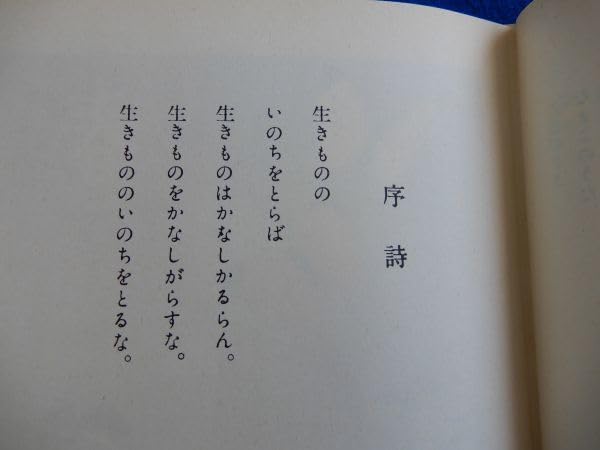 序詩
生きものの
いのちをとらば
生きものはかなしかるらん。
生きものをかなしがらすな。
生きもののいのちをとるな。